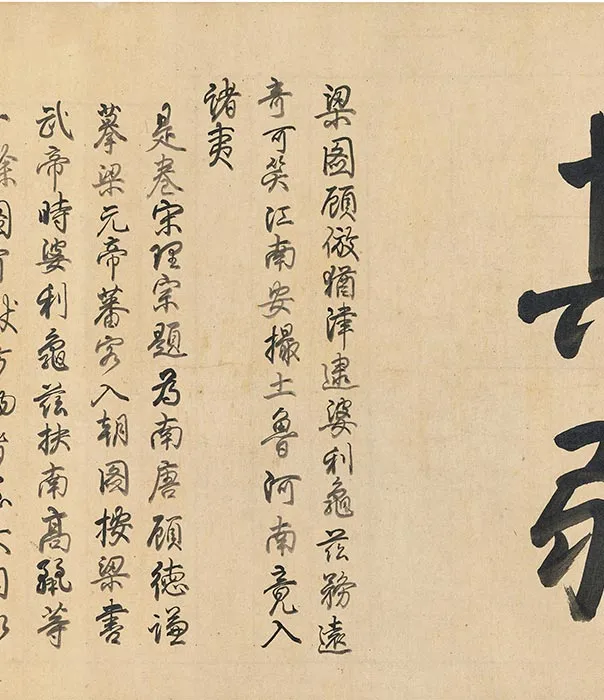 梁圖顧倣猶津逮婆利龜茲務遠
奇可笑江南安撮土魯河南竟入
諸夷
是卷宋理宗題為南唐顧德謙
摹梁元帝蕃客入朝圖按梁書
武帝時婆利龜茲扶南高驪等